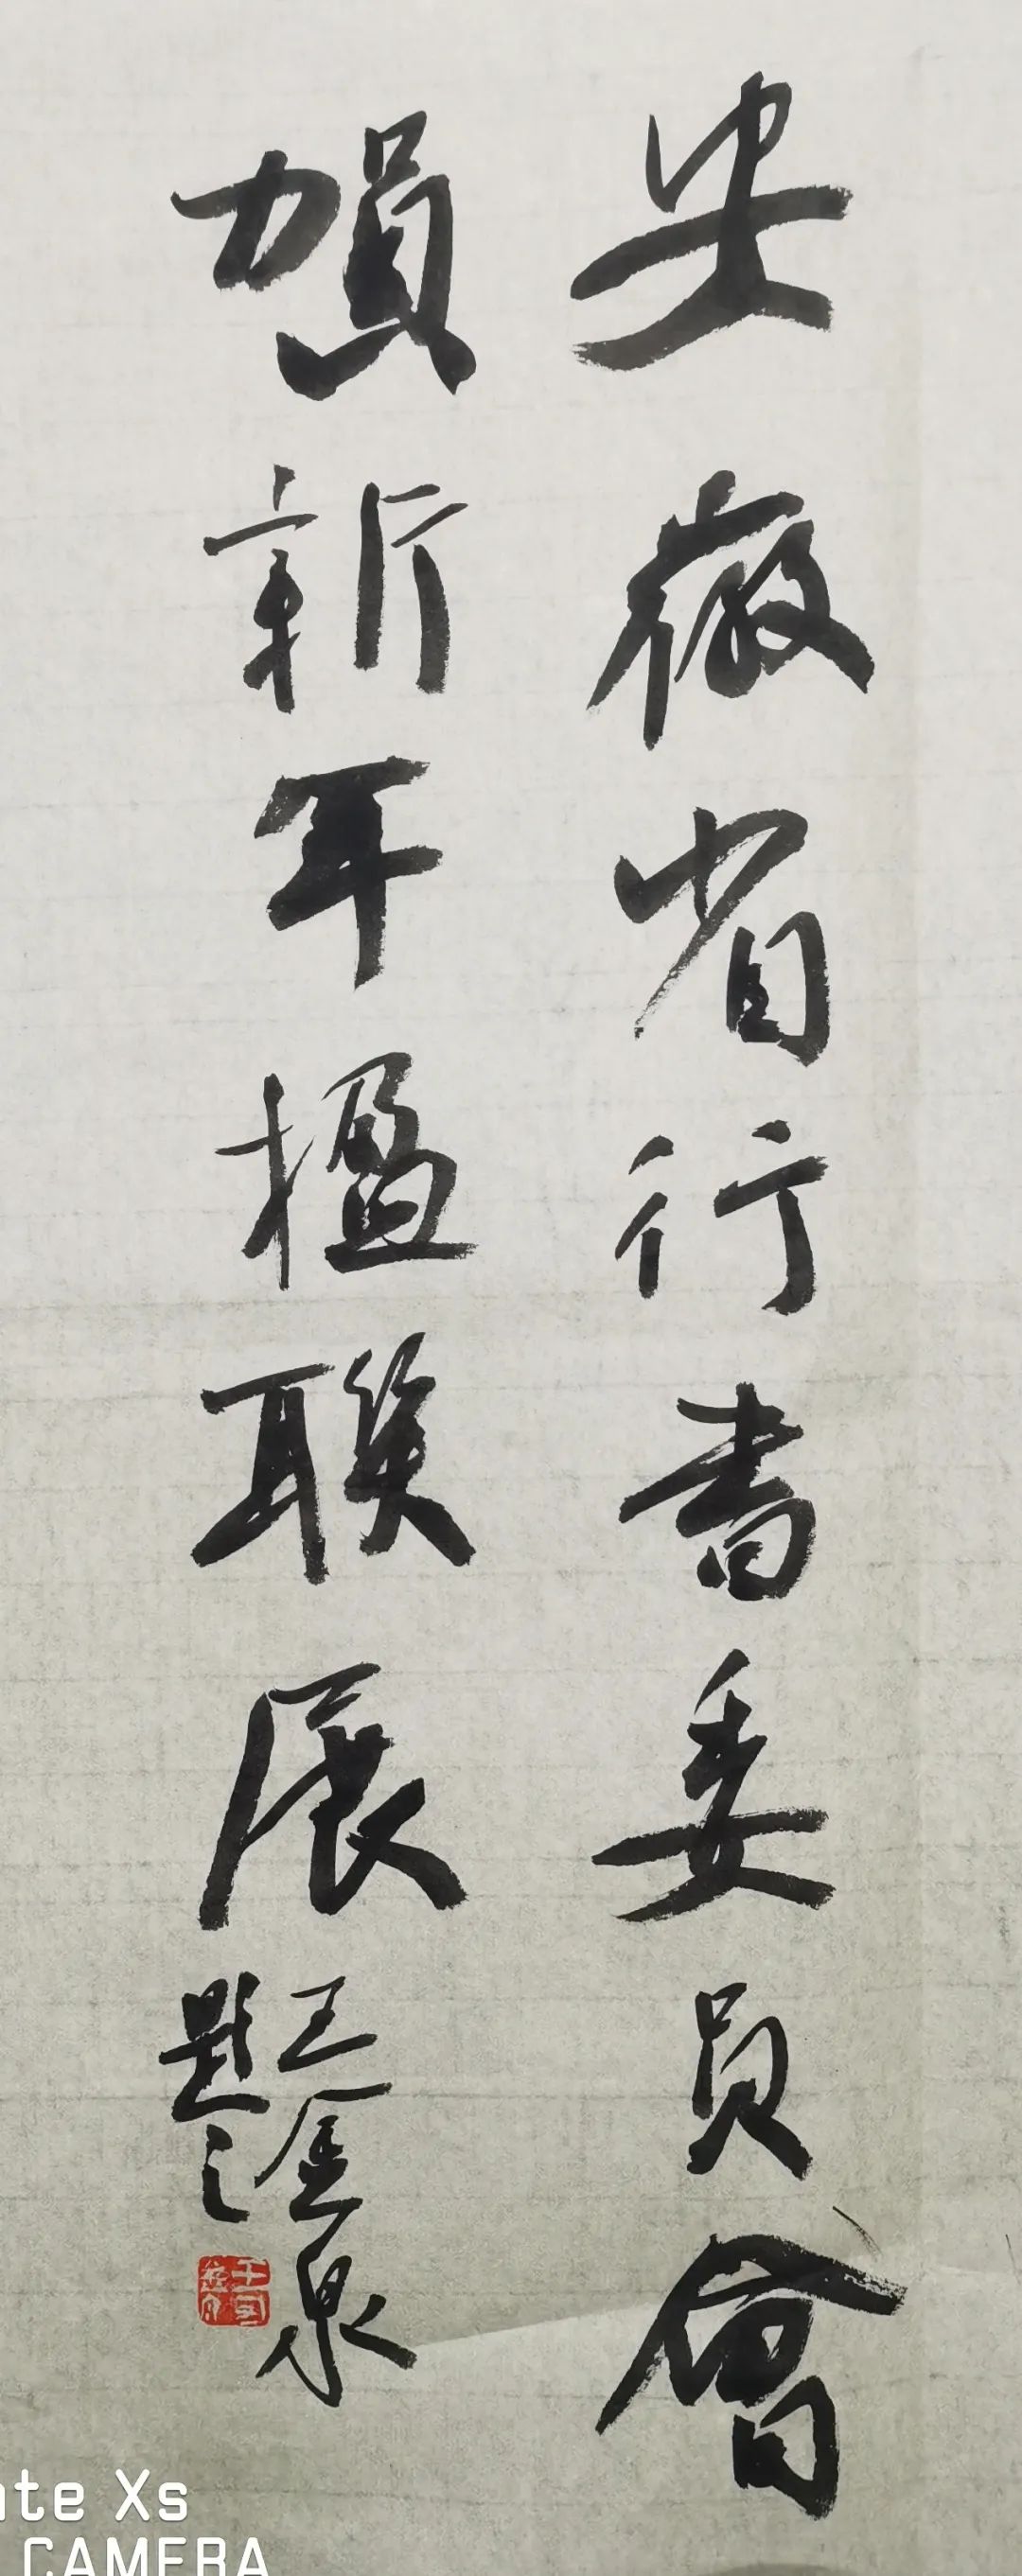 安徽省行書委員會
賀新年楹聯展
王金泉
題之
ate Xs
CAMERA